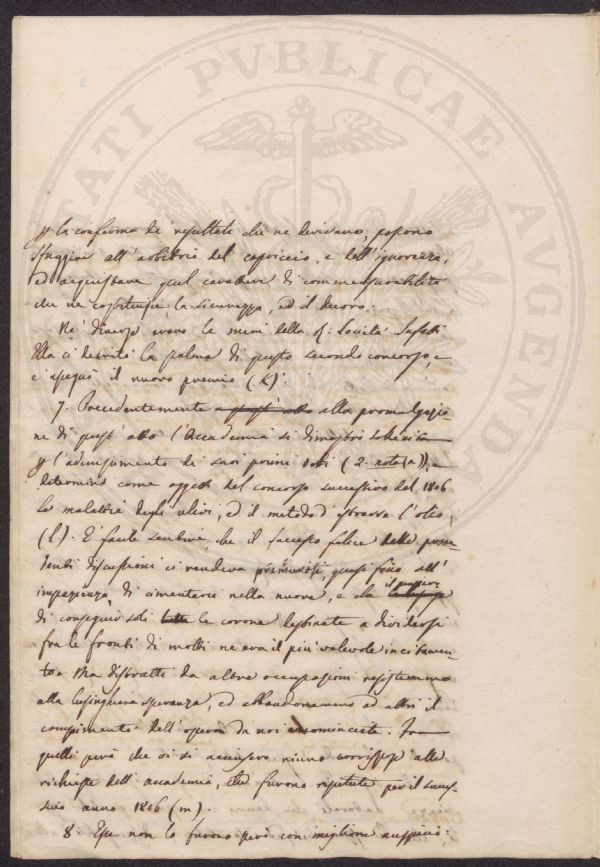 PVBLICAE
TATI
AVGENDA
la conferma de' resultati che ne derivano, possono
sfuggire all' arbitrio del capriccio, e dell' ignoranza,
ed acquistare quel carattere di commensurabilità
che ne costituisce la sicurezza, ed il decoro.
Ne diverse erano le mire della Società
Ella ci decretò la palma di questo secondo concorso, e
c' assegnò il nuovo premio (K).
7. Precedentemente alla promulgazio-
ne di quest' atto l' Accademia si dimostrò sollecita
l' adempimento di suoi primi voti (2. nota (a)), e
determinò come oggetto del concorso successivo del 1806
le malattie degli ulivi, ed il metodo d' estrarre l' olio
(l). È facile che il successo felice delle prece-
denti discussioni ci rendeva premurosi, quasi fino all'
impazienza di cimentarci nella nuova, e che il piacere
di conseguir soli le corone destinate a dividersi
fra le fronti di molti ne era il più valevole incitamen-
to. Ma distratti da altre occupazioni resistemmo
alla lusinghiera speranza, ed abbandonammo ad altri il
compimento dell' opera da noi incominciata. Fra
quelli però che vi si accinsero niuno corrispose alle
richieste dell' accademia, che furono ripetute per il
anno 1806 (m).
8. Esse non lo furono però con migliore auspicio: